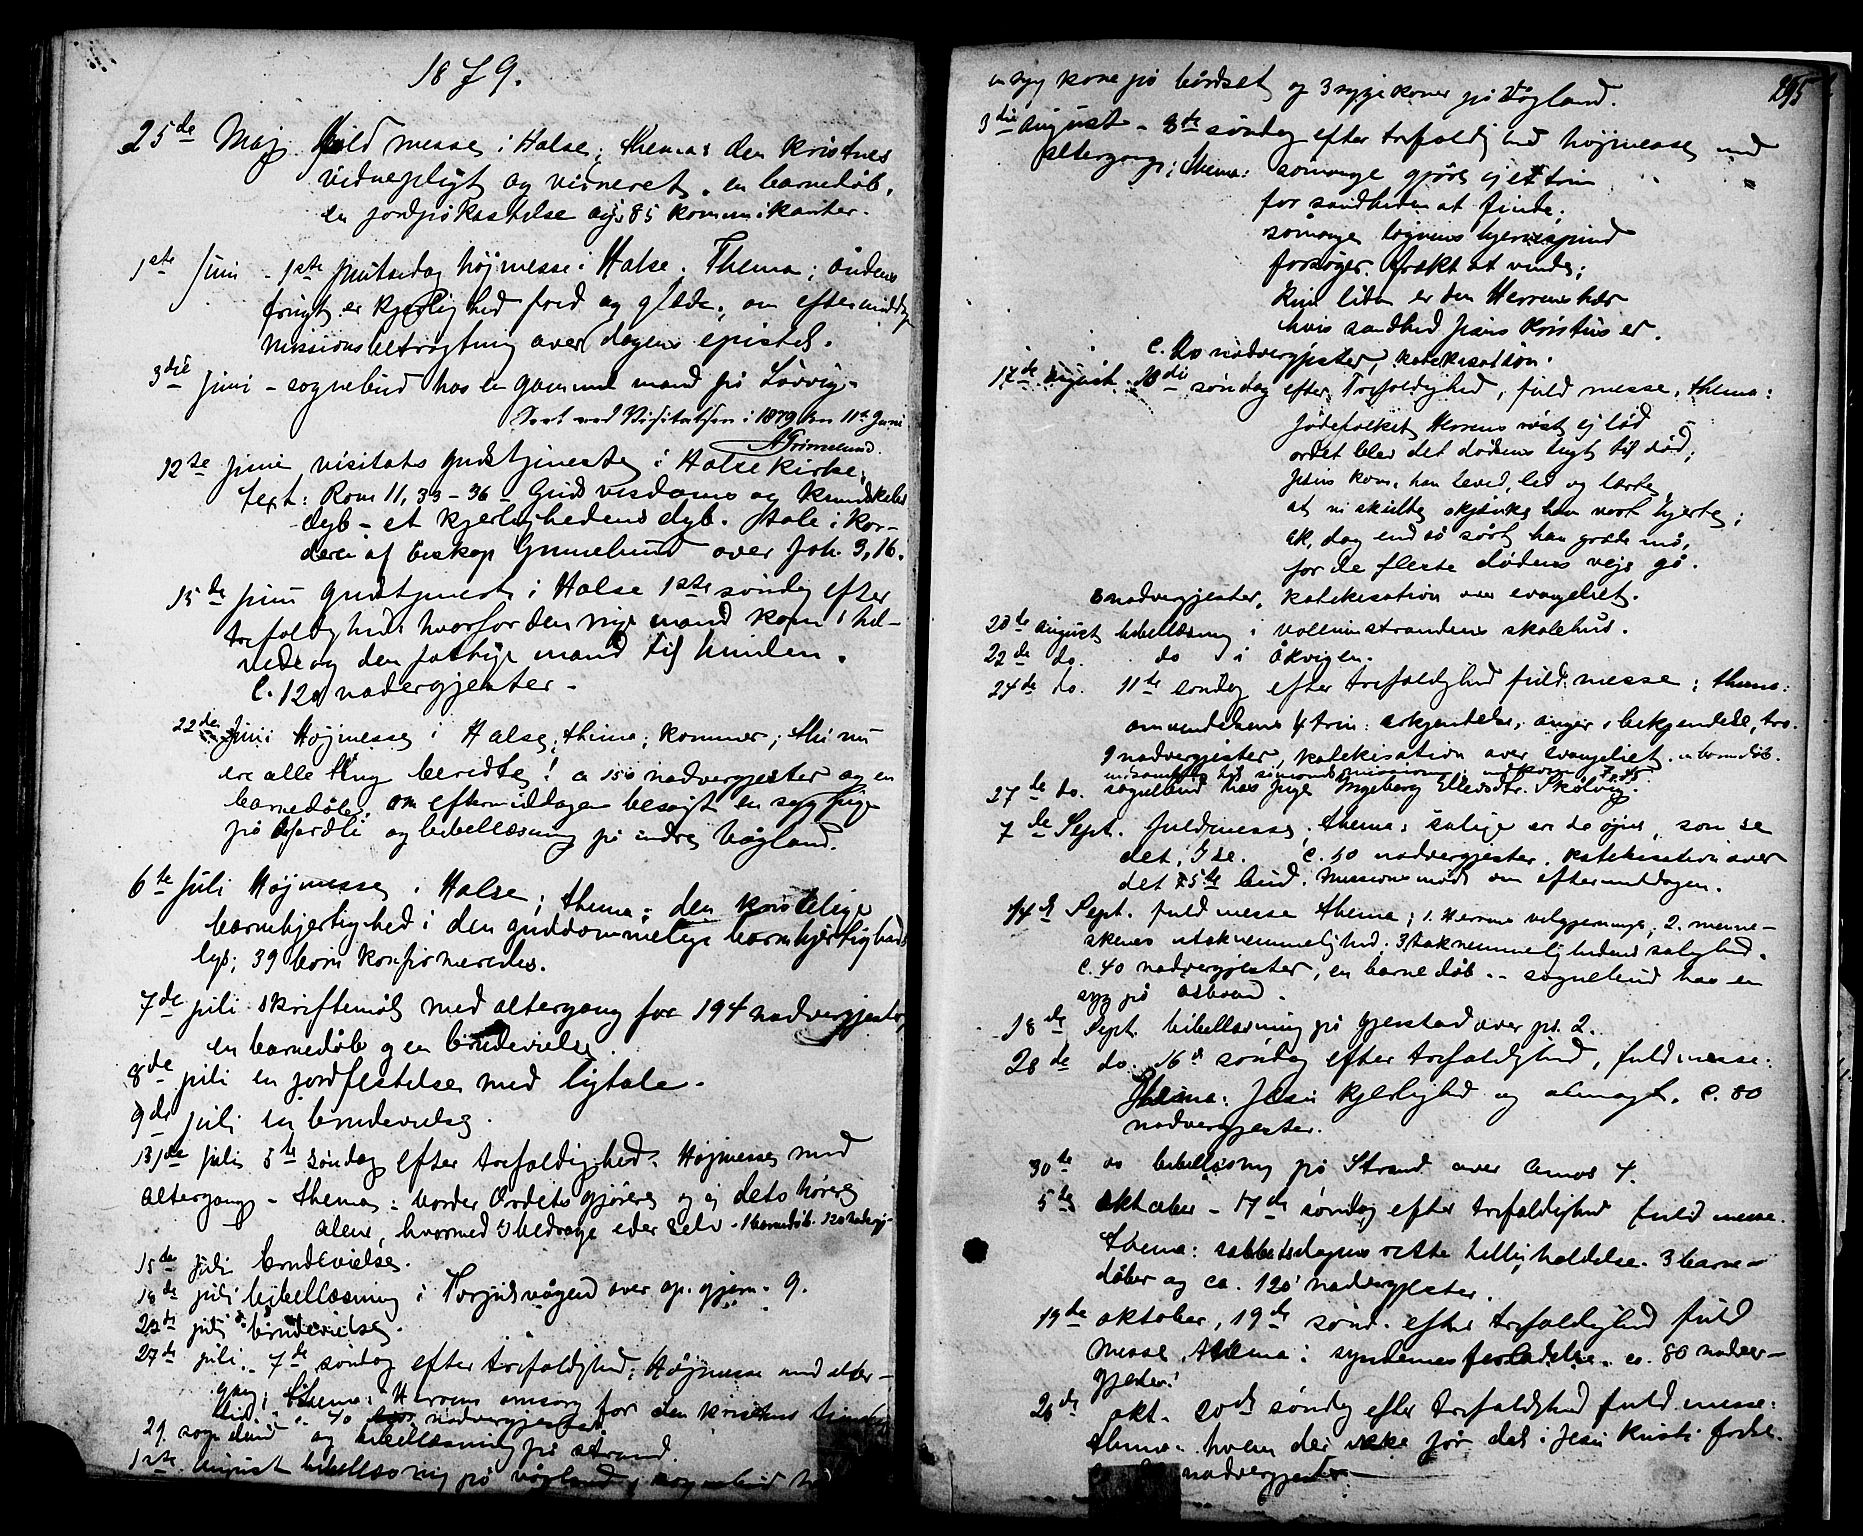 1879.
25de Maj. fuld messe i Halse; thema: den kristnes
vidnepligt og vidneret. en barnedåb.
en jordpåkastelse og 85 kommunikanter.
1ste Juni - 1ste pintsedag højmesse i Halse. Thema; åndens
frugt er kjerlighed fred og glæde; om eftermiddag
missionsbetragtning over dagens epistel.
3die Juni - sognebud hos en gammel mand på
Seet ved Visitatsen i 1879 den 11te Juni
AGrimelund.
12te Juni visitats gudstjeneste i Halse kirke,
text: Rom 11, 33-36 - Guds visdoms og kundskabs
dyb - et kjerlighedens dyb. tale i kor-
deren af biskop Grimelund over Joh. 3, 16.
15de Juni gudstjeneste i Halse 1ste søndag efter
trefoldighed: hvorfor den rige mand kom i hel-
vede og den fattige mand til himlen.
C. 120 nadvergjester -
22de Juni Højmesse i Halse; thema; kommer; thi nu
ere alle ting beredte! ca 150 nadvergjester og en
barnedåb, om eftermiddagen besøgt en syg pige
på og bibellæsning på indre Vågland.
6te Juli Højmesse i Halse; thema; den kristelige
barmhjertighed i den guddommelige barmhjertigheds
lys; 39 børn konfirmeredes.
7de juli skriftemål med altergang for 194 nadvergjester,
en barnedåb og en brudevielse.
8de juli en jordfestelse med ligtale.
9de juli en brudevielse.
13de juli 5te søndag efter trefoldighed. Højmesse med
altergang - thema: vorder Ordets gjørere og ej dets hørere
alene, hvormed I bedrage eder selv - 1 barnedåb. 120 nadvergj-
15de juli brudevielse.
18de juli bibellæsning i Torjulsvågen over ap. gjern. 9.
23de juli brudevielse.
27de juli. 7de søndag efter trefoldighed; Højmesse med alter-
gang; thema: Herrens omsorg for den kristnes timelige
40 nadvergjester.
29. sognebud og bibellæsning på strand.
1ste august bibellæsning på vågland, sognebud hos
295
en syg kone på bårdset og 3 syge koner på Vågland.
3die august - 8de søndag efter trefoldighed højmesse med
altergang; thema: såmange gjøre ej et trin
for sandheden at finde;
såmange løgnens hjernespind
forsøger frækt at vinde;
kun liden er den Herrens hær
hvis sandhed Jesus Kristus er.
C. 20 nadvergjester, katekisation.
17de august. 10de søndag efter Trefoldighed, fuld messe, thema:
Jødefolket Herrens røst ej lød
ordet blev det dødens lugt til død;
Jesus kom, han leved, led og lærte,
at vi skulde skjænke ham vort hjerte;
ak, dog endnu så sårt han græde må,
for de fleste dødens veje gå.
8 nadvergjester, katekisation over evangeliet.
20de august bibellæsning i valsøestrandens skolehus.
22de do. do i åkvigen.
24de do. 11te søndag efter trefoldighed fuld messe: thema:
omvendelsens 4 trin: erkjendelse, anger, bekjendelse, tro.
9 nadvergjester, katekisation over evangeliet. en barnedåb.
27de do. sognebud hos pige Ingeborg Ellevsdtr. Skålvig.
7de Sept. fuldmesse, thema: salige ere de øjne, som se
det, I se. C. 50 nadvergjester. katekisation over
det 5te bud. Missionsmøde om eftermiddagen.
14de Sept. fuld messe thema; 1. Herrens velgjerninge; 2. menne-
skenes utaknemmelighed. 3 taknemmelighedens salighed.
C. 40 nadvergjester, en barnedåb. - sognebud hos en
syg på
18de Sept. bibellæsning på gjerstad over ps. 2.
28de do. 16de søndag efter trefoldighed, fuld messe:
Thema: Jesu kjerlighed og almagt. C. 80
nadvergjester.
30te do bibellæsning på Strand over Amos 4.
5te oktober - 17de søndag efter trefoldighed fuld messe.
thema: sabbatsdagens rette helligholdelse. 3 barne-
dåber og ca. 120 nadvergjester.
19de oktober, 19de sønd. efter trefoldighed fuld
messe. thema: syndernes forladelse. ca. 80 nadver-
gjester.
26de okt. 20de søndag efter trefoldighed fuld messe:
thema: hvem der ikke får del i Jesu Kristi frelse.
nadvergjester -